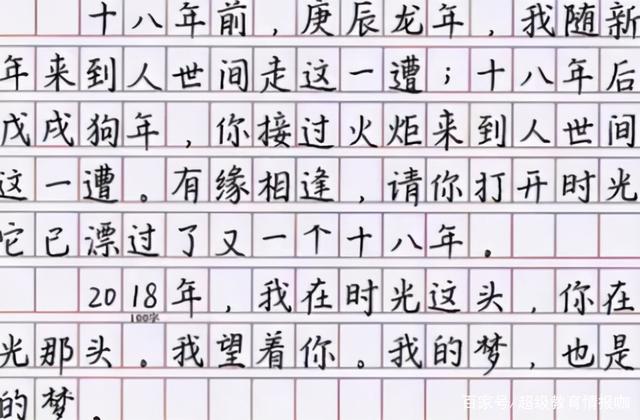 十八年前，庚辰龙年，我随新
年来到人世间走这一遭；十八年后
戊戌狗年，你接过火炬来到人世间
这一遭。有缘相逢，请你打开时光
它已漂过了又一个十八年。
2018年，我在时光这头，你在
100字
光那头。我望着你。我的梦，也是
的梦。
百家号/超级教育情报咖